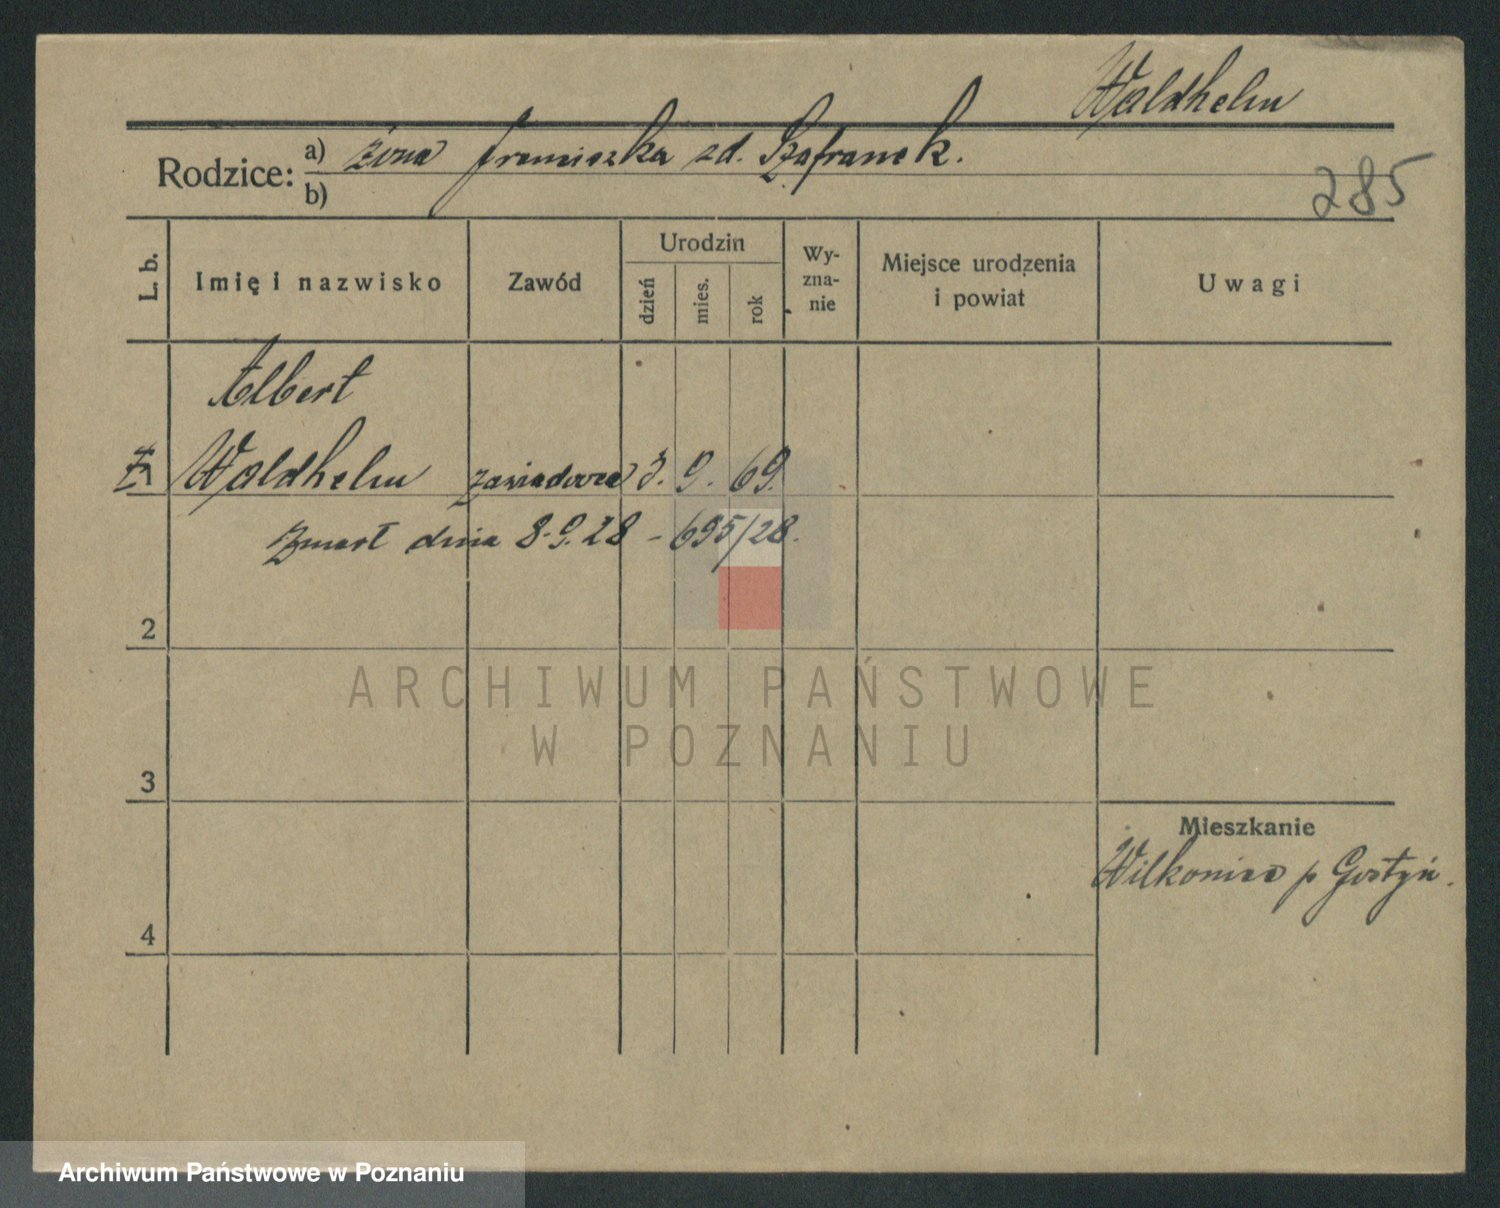 Waldhelm
Rodzice: a) żona Franciszka zd. Szafranek.
b)
285
L. b.
Imię i nazwisko
Zawód
Urodzin
dzień
mies.
rok
Wy-
zna-
nie
Miejsce urodzenia
i powiat
Uwagi
Albert
Waldhelm zawiadowca 3. 9. 69.
zmarł dnia 8.9.28 - 695/28.
2
ARCHIWUM PAŃSTWOWE
W POZNANIU
3
Mieszkanie
Wilkonice p Gostyń.
4
Archiwum Państwowe w Poznaniu